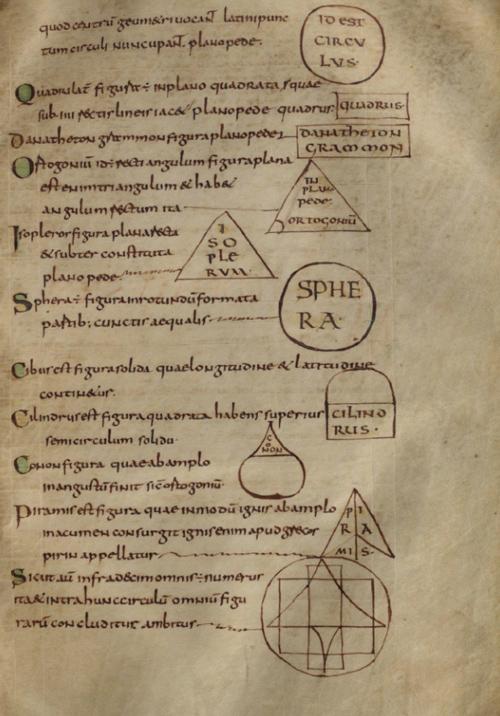 quod centrũ geum&ri vocanť latini punc
tum circuli nuncupanť. plano pede.
ID EST
CIRCU
LUS.
Quadrilať figura ÷ in plano quadrata, quae
sub .iiii. rectis lineis iac& plano pede quadrus:
QUADRUS
Danatheton grammon figura plano pede
DANATHETON
GRAMMON
Ortogoniũ id÷ rectiangulum figura plana
est enim triangulum & hab&
angulum rectum ita
IN
PLANO
PEDE
ORTOGONIŨ
Isopleros figura plana recta
& subter constituta
plano pede
I
SO
PLE
RUM.
Sphera ÷ figura in rotundũ formata
partib; cunctis aequalis
SPHE
RA.
Cibus est figura solida quae longitudine & latitudine
contin&ur.
Cilindrus est figura quadrata habens superius
semicirculum solidũ.
CILIND
RUS.
Conon figura quae ab amplo
in angustũ finit sic ortogoniũ.
C
O
NON
Piramis est figura quae in modũ ignis ab amplo
in acumen consurgit ignis enim apud grecos
pirin appellatur
P I
R A
MI S.
Sicut aũ infra decim omnis ÷ numerus
ita & intra hunc circulũ omniũ figu
rarũ concluditur ambitus